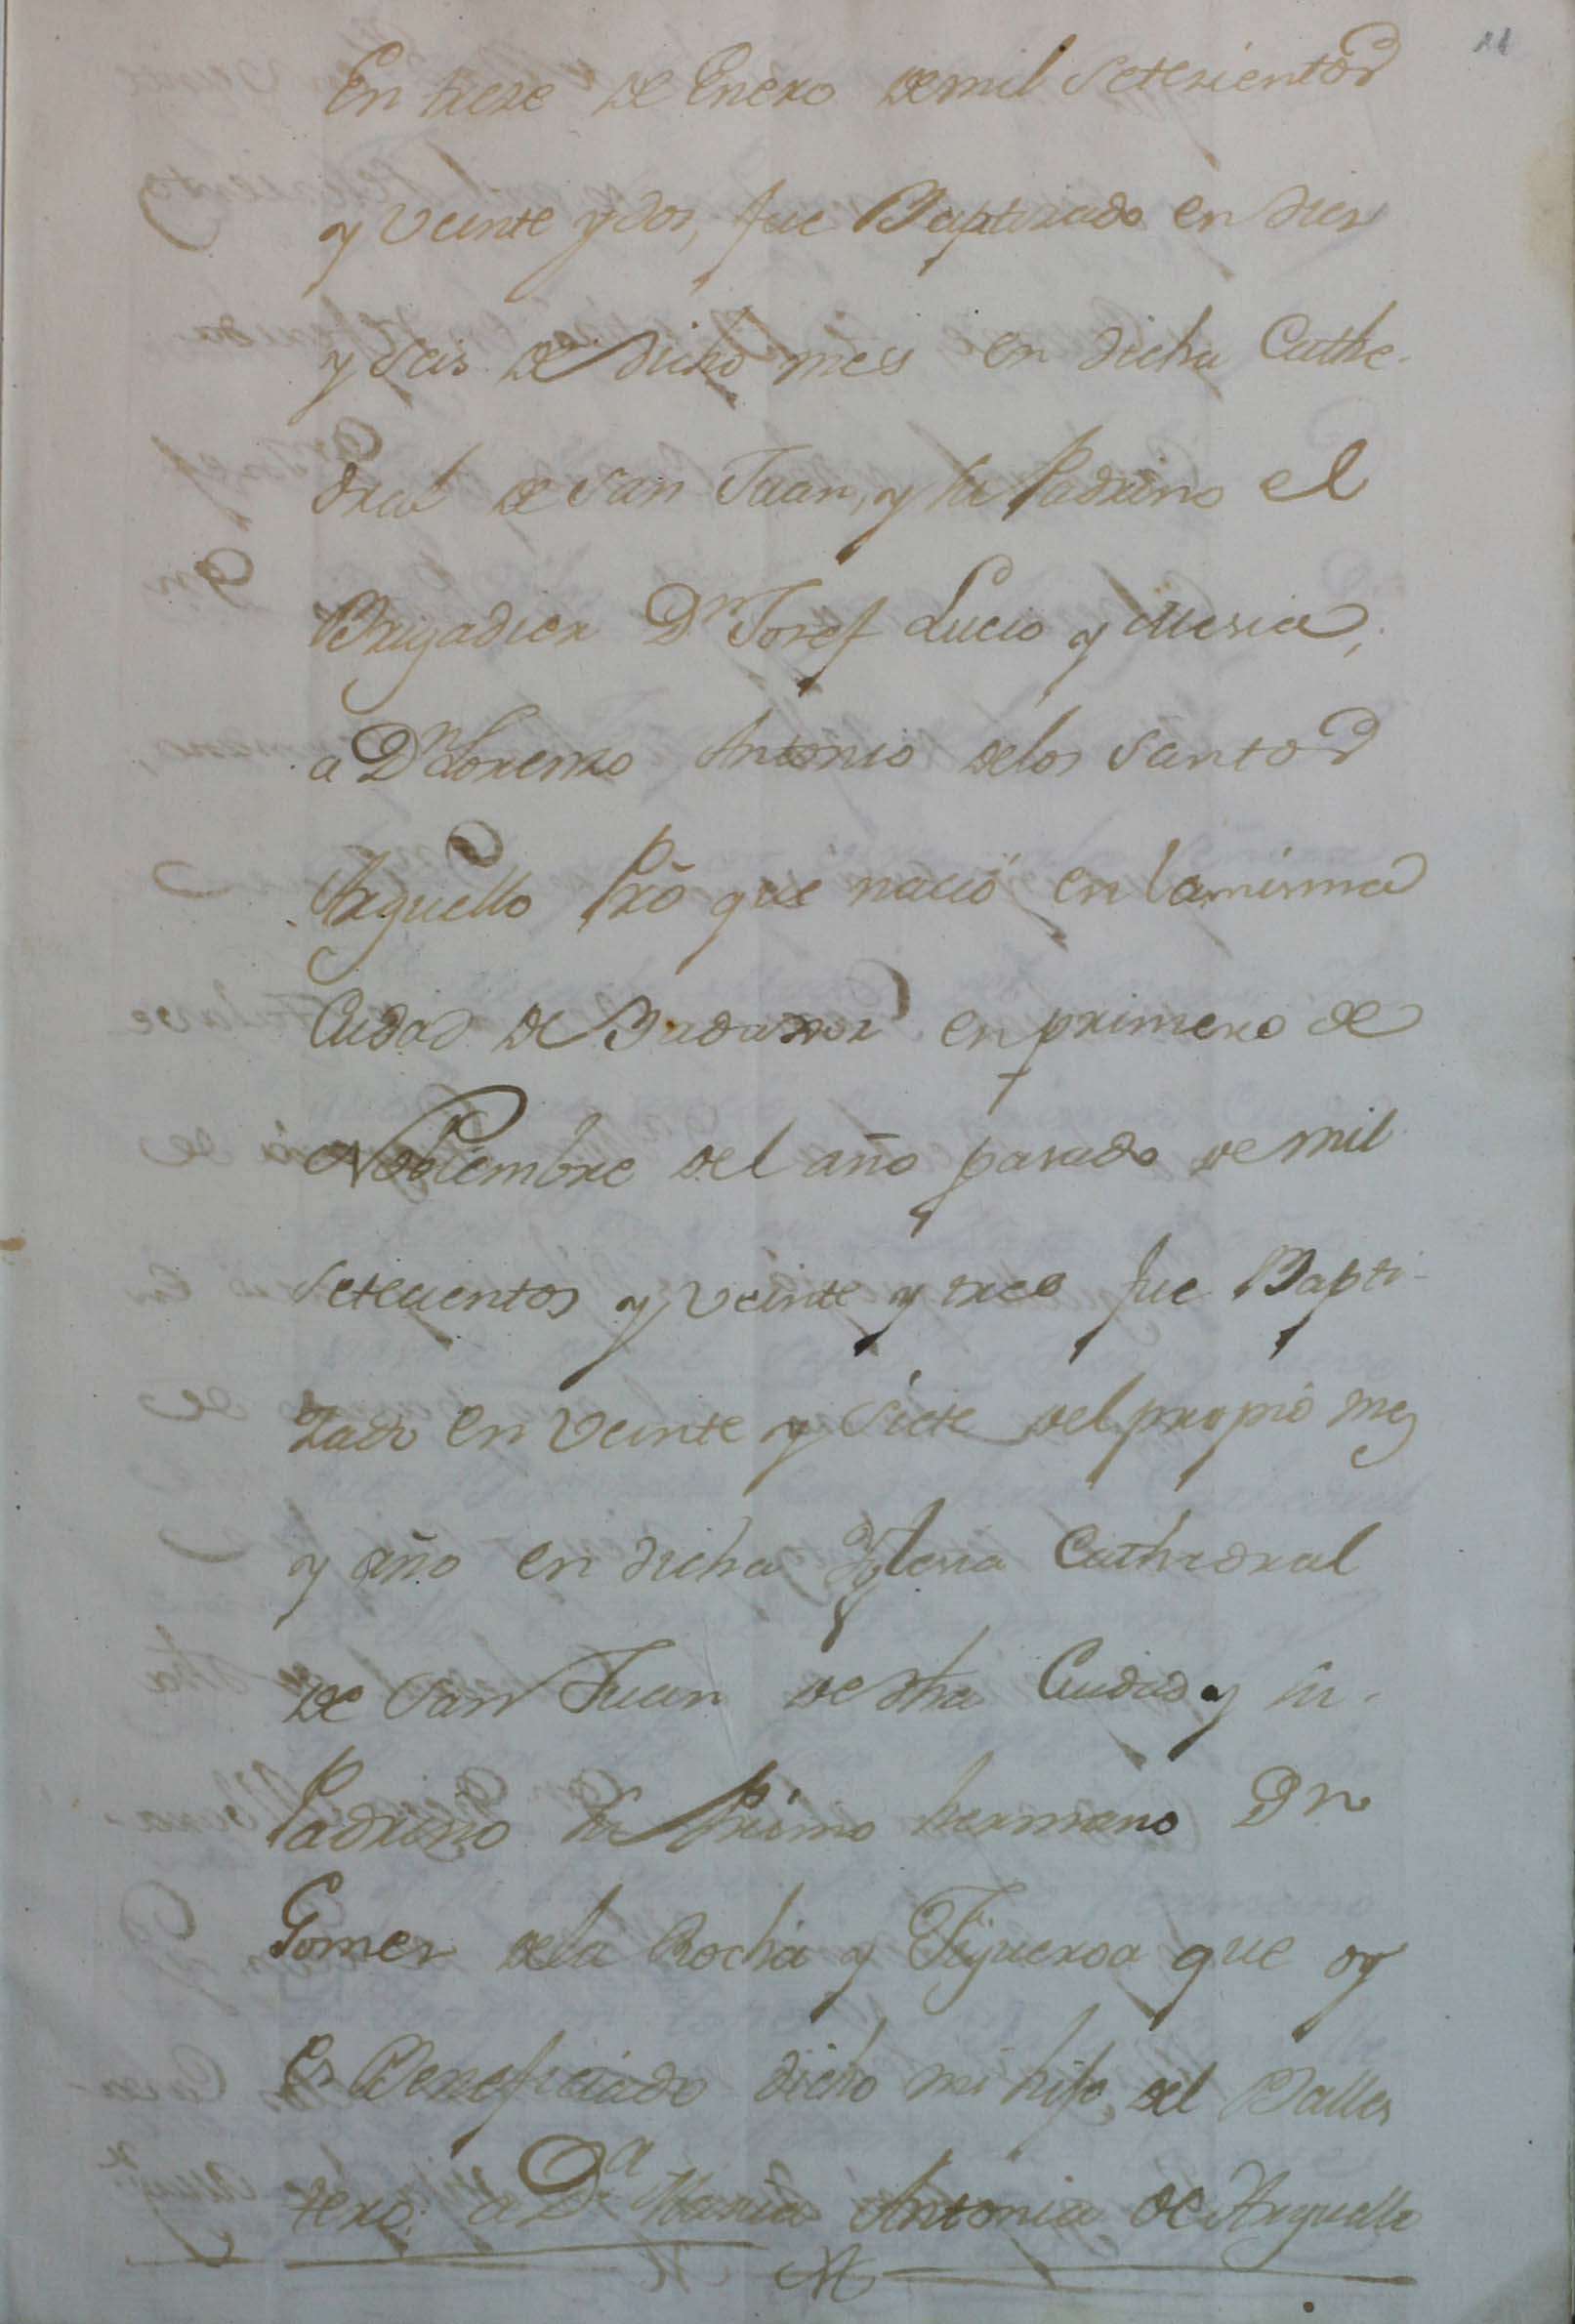 11
En treze de Enero de mil Setezientos
y Veinte y dos, fue Baptizado en diez
y seis de dicho mes en dicha Cathe-
dral de San Juan, y su Padrino el
Brigadier Dn Josef Lucio y Mesia,
a Dn Lorenzo Antonio delos Santos
Arguello Pro que nació en la misma
Ciudad de Badaxoz en primero de
Nobiembre del año pasado de mil
Setecientos y Veinte y tres fue Bapti-
zado en Veinte y Siete del propio mes
y año en dicha Yglesia Cathedral
de San Juan de dha Ciudad y su
Padrino su Primo hermano Dn
Gomez dela Rocha y Figueroa que oy
es Beneficiado dicho mi hijo, del Balles
tero: a Da Maria Antonia de Arguello